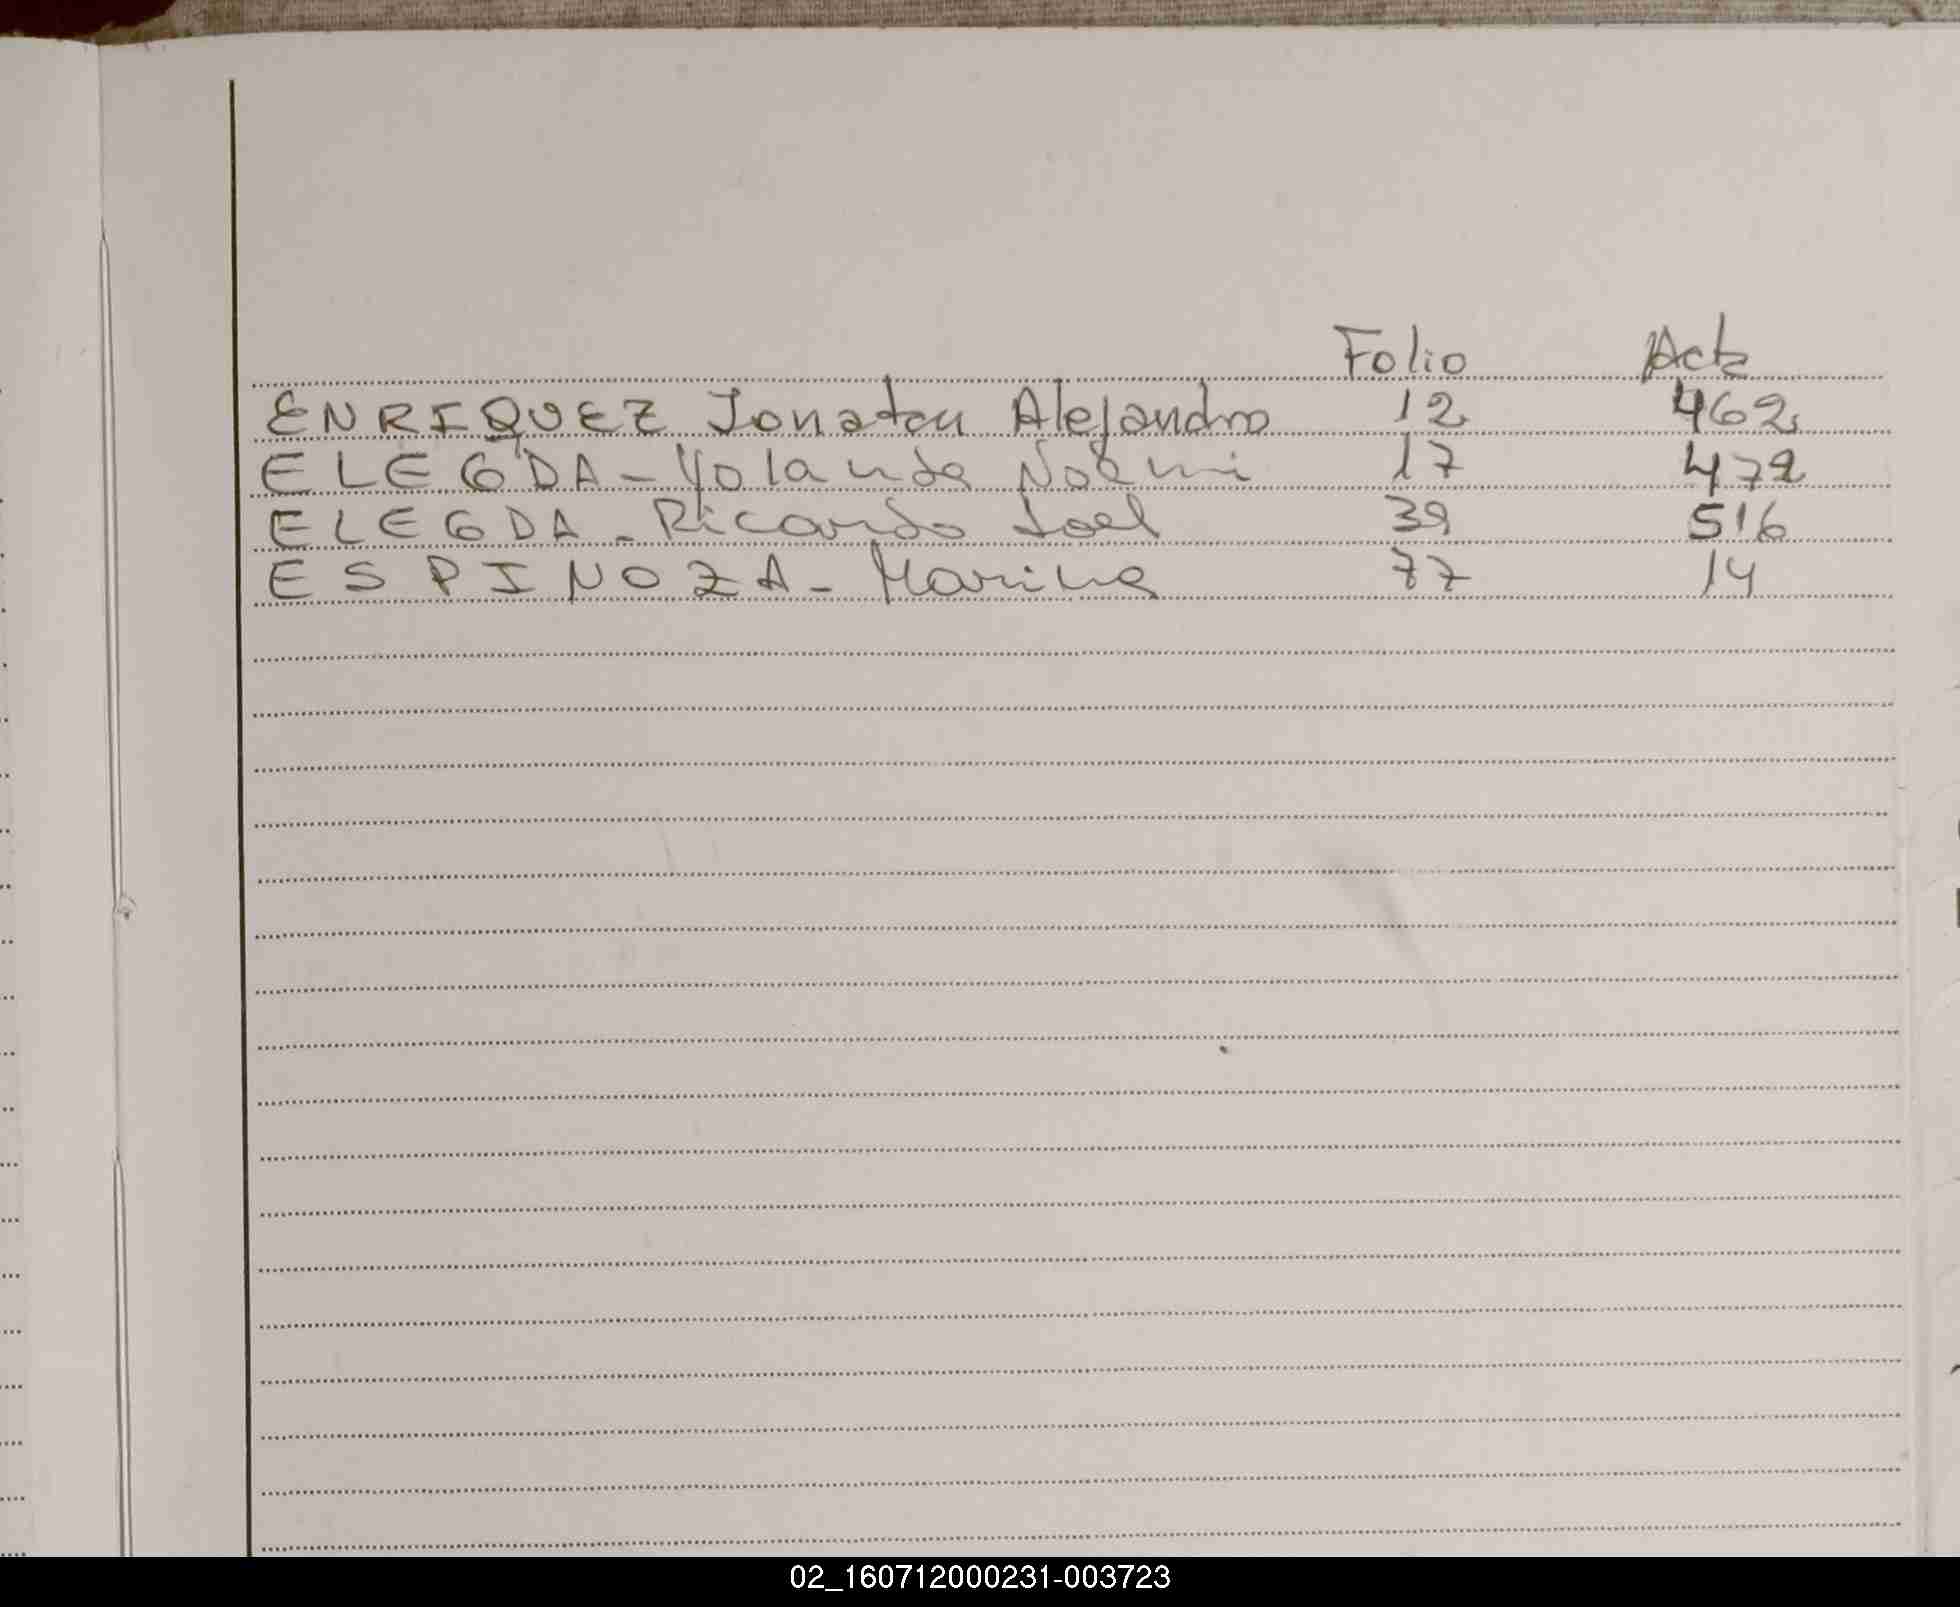 Folio Acta
ENRIQUEZ Jonatan Alejandro 12 462
ELEGDA - Yolanda Noemi 17 472
ELEGDA - Ricardo Joel 39 516
ESPINOZA - Marina 77 14
02_160712000231-003723